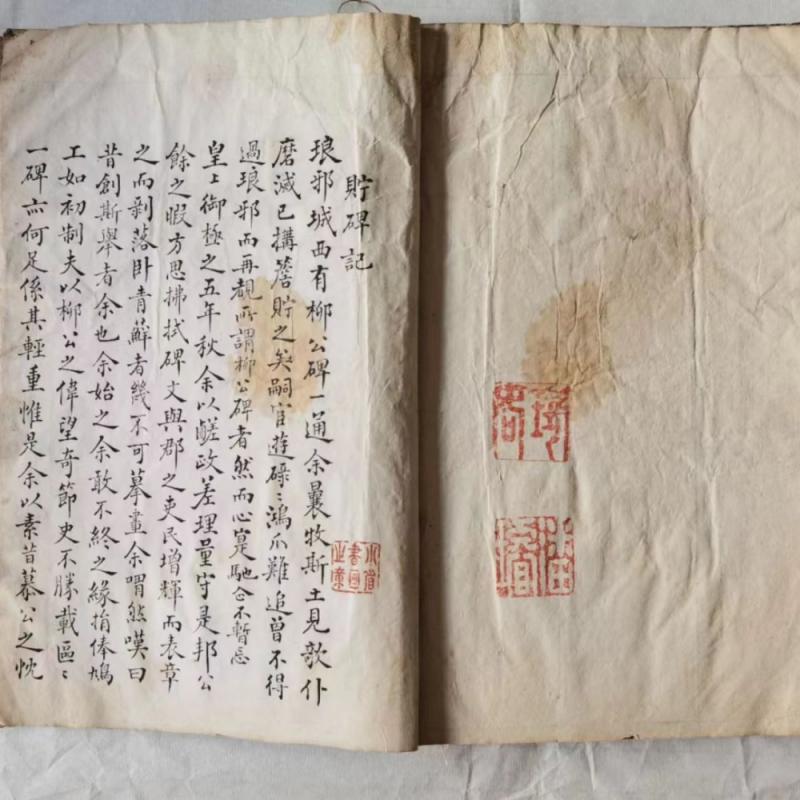 貯碑記
琅邪城西有柳公碑一通余曩牧斯土見欹仆
磨滅已搆簷貯之矣嗣官遊碌〻鴻爪難追曾不得
過琅邪而再覩所謂柳公碑者然而心寔馳念不暫忘
皇上御極之五年秋余以鹺政差理量守是邦公
餘之暇方思拂拭碑文與郡之吏民增輝而表章
之而剥落卧青蘚者幾不可摹畫余喟然嘆曰
昔創斯舉者余也余始之余敢不終之緣捐俸鳩
工如初制夫以柳公之偉望奇節史不勝載區〻
一碑亦何足係其輕重惟是余以素昔慕公之忱
書畫
之章